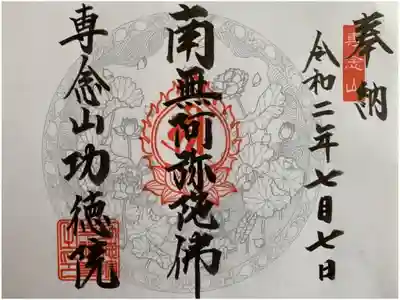 奉納
令和二年七月七日
南無阿弥陀佛
専念山功徳院